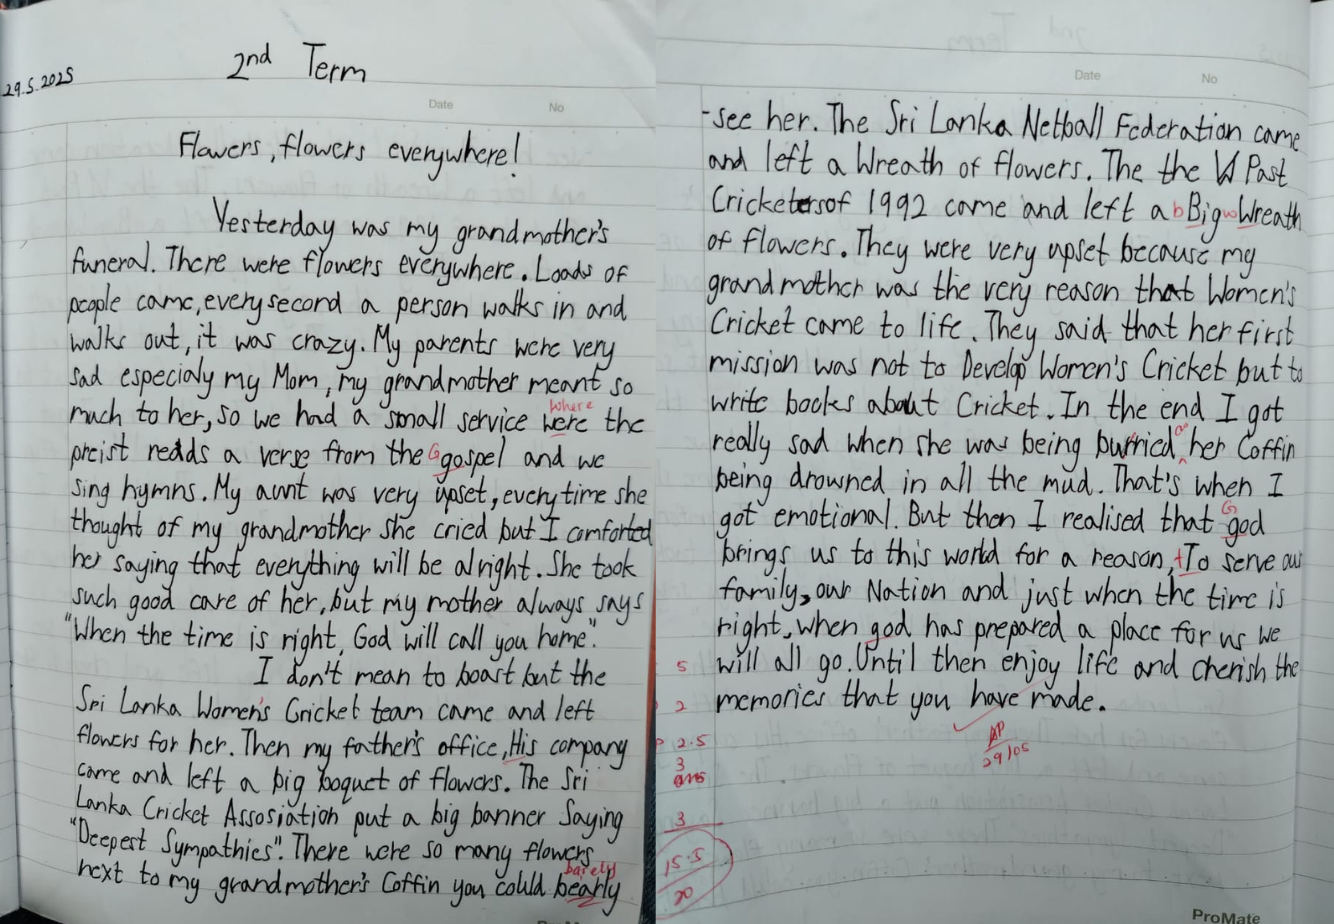 29.5.2025
2nd Term
Date No
Flowers, flowers everywhere!
Yesterday was my grandmother's
funeral. There were flowers everywhere. Loads of
people came, every second a person walks in and
walks out, it was crazy. My parents were very
sad especialy my Mom, my grandmother meant so
where
much to her, so we had a small service were the
preist redds a verse from the G gospel and we
sing hymns. My aunt was very upset, every time she
thought of my grandmother she cried but I comforted
her saying that everything will be alright. She took
such good care of her, but my mother always says
"When the time is right, God will call you home".
I don't mean to boast but the
Sri Lanka Women's Cricket team came and left
flowers for her. Then my father's office, His company
came and left a big boquet of flowers. The Sri
Lanka Cricket Assosiation put a big banner Saying
"Deepest Sympathies". There were so many flowers
barely
next to my grandmother's Coffin you could bearly
ProMate
Date No
-see her. The Sri Lanka Netball Federation came
and left a Wreath of flowers. The the Past
Cricketers of 1992 came and left a b Big w Wreath
of flowers. They were very upset because my
grandmother was the very reason that Women's
Cricket came to life. They said that her first
mission was not to Develop Women's Cricket but to
write books about Cricket. In the end I got
really sad when she was being burried her Coffin
being drowned in all the mud. That's when I
G
got emotional. But then I realised that god
brings us to this world for a reason, t To serve our
family, our Nation and just when the time is
right, when god has prepared a place for us we
5 will all go. Until then enjoy life and cherish the
2 memories that you have made.
2.5
29/05
3
3
15.5
20
ProMate